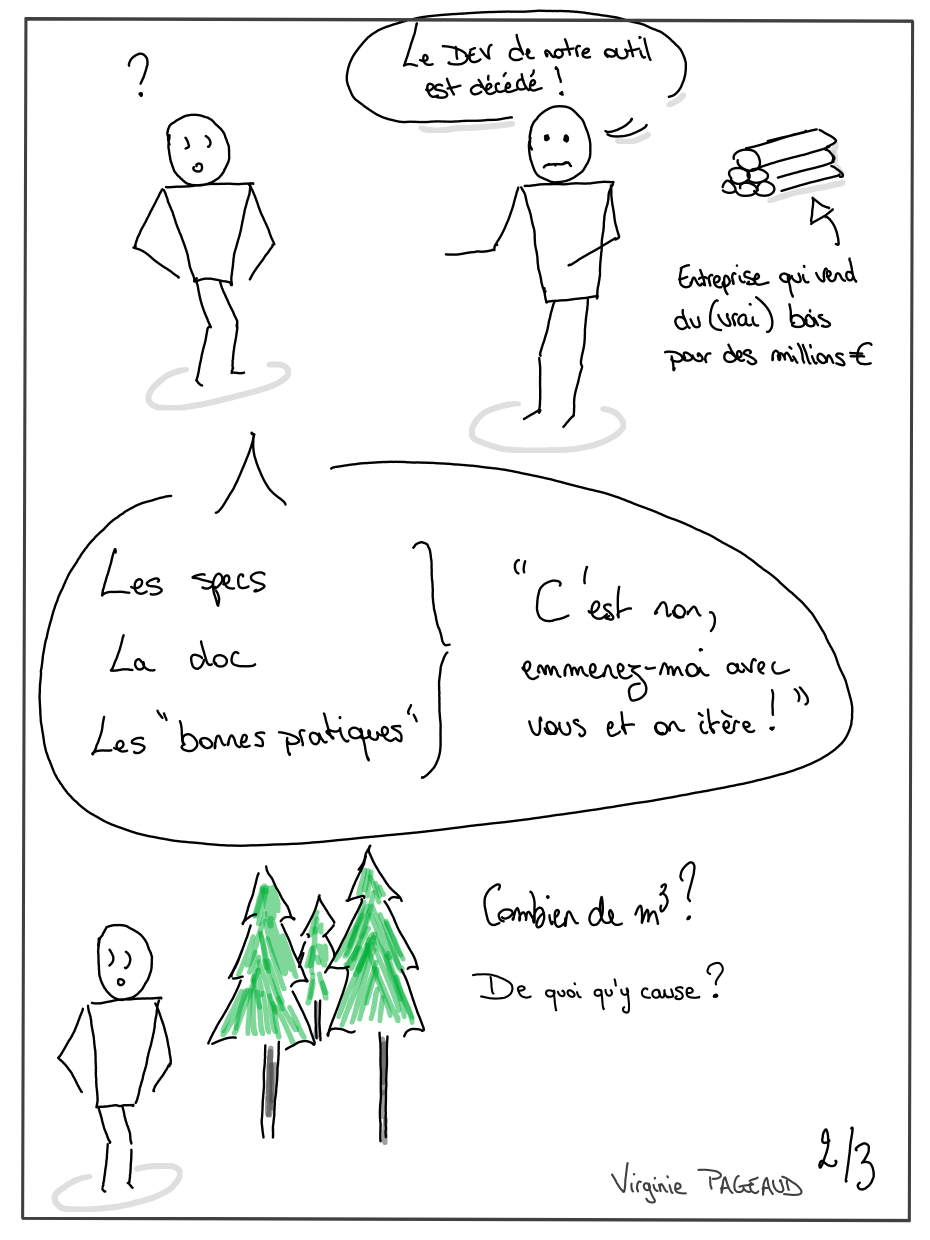 ?
Le DEV de notre outil
est décédé !
Entreprise qui vend
du (vrai) bois
pour des millions €
Les specs
La doc
Les "bonnes pratiques"
"C'est non,
emmenez-moi avec
vous et on itère ! "
Combien de m³ ?
De quoi qu'y cause ?
Virginie PAGEAUD
2/3